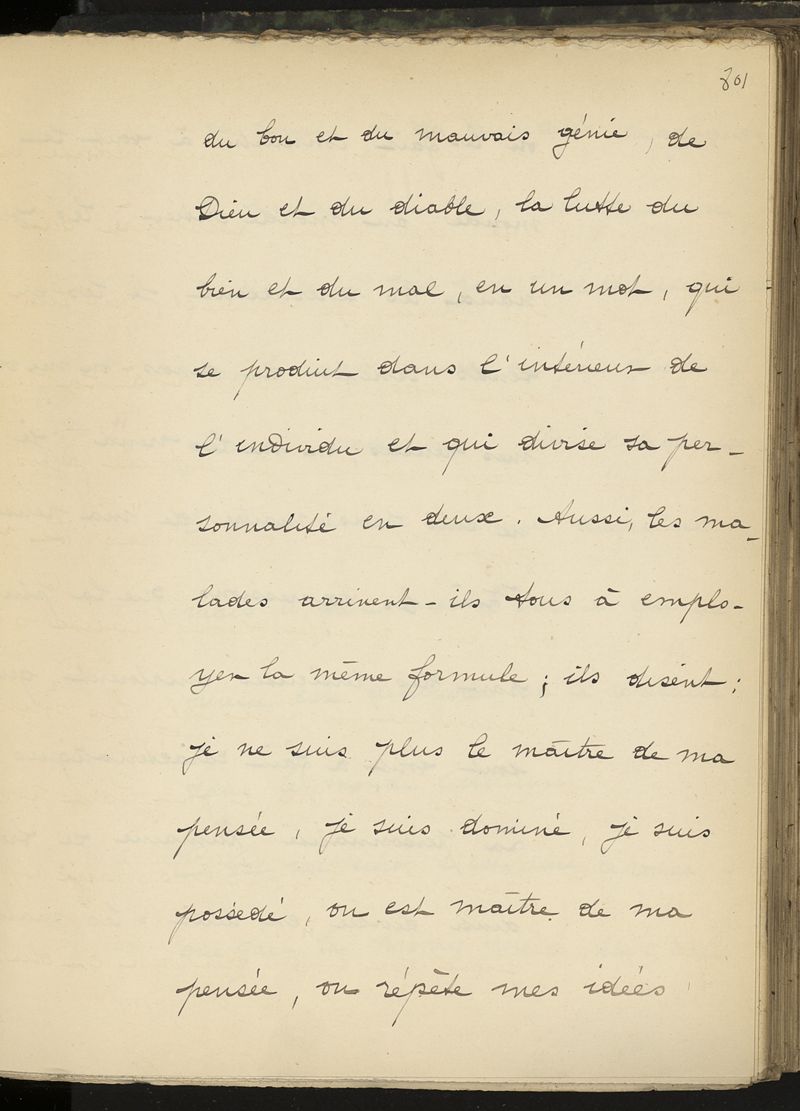 801
du bon et du mauvais génie, de
Dieu et du diable, la lutte du
bien et du mal, en un mot, qui
se produit dans l'intérieur de
l'individu et qui divise sa per-
sonnalité en deux. Aussi, les ma-
lades arrivent-ils tous à emplo-
yer la même formule ; ils disent :
je ne suis plus le maître de ma
pensée, je suis dominé, je suis
possédé, on est maître de ma
pensée, on répète mes idées